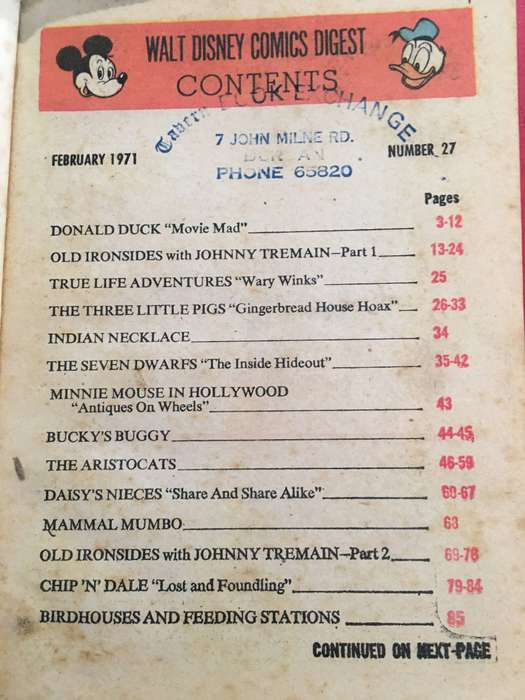 WALT DISNEY COMICS DIGEST
CONTENTS
Tavern BOOK EXCHANGE
7 JOHN MILNE RD.
DURBAN
PHONE 65820
FEBRUARY 1971
NUMBER 27
Pages
DONALD DUCK “Movie Mad” 3-12
OLD IRONSIDES with JOHNNY TREMAIN—Part 1 13-24
TRUE LIFE ADVENTURES “Wary Winks” 25
THE THREE LITTLE PIGS “Gingerbread House Hoax” 26-33
INDIAN NECKLACE 34
THE SEVEN DWARFS “The Inside Hideout” 35-42
MINNIE MOUSE IN HOLLYWOOD
“Antiques On Wheels” 43
BUCKY'S BUGGY 44-45
THE ARISTOCATS 46-59
DAISY'S NIECES “Share And Share Alike” 60-67
MAMMAL MUMBO 68
OLD IRONSIDES with JOHNNY TREMAIN—Part 2 69-78
CHIP 'N' DALE “Lost and Foundling” 79-84
BIRDHOUSES AND FEEDING STATIONS 85
CONTINUED ON NEXT PAGE